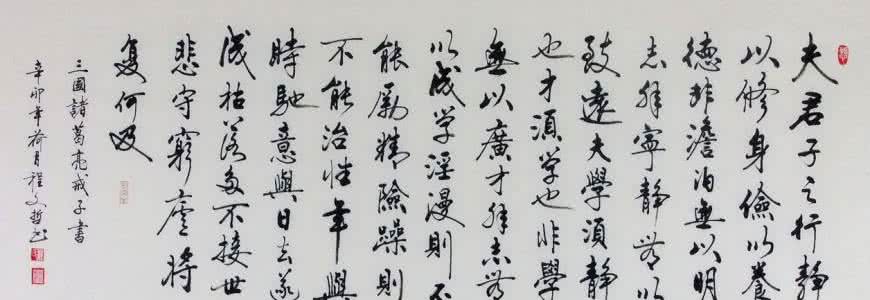 夫君子之行靜
以修身儉以養
德非澹泊無以明
志非寧靜無以
致遠夫學須靜
也才須學也非學
無以廣才非志無
以成学淫漫則不
能勵精險躁則
不能治性年與
時馳意與日去遂
成枯落多不接世
悲守窮廬將
复何及
三國諸葛亮戒子書
辛卯年荷月程文哲书